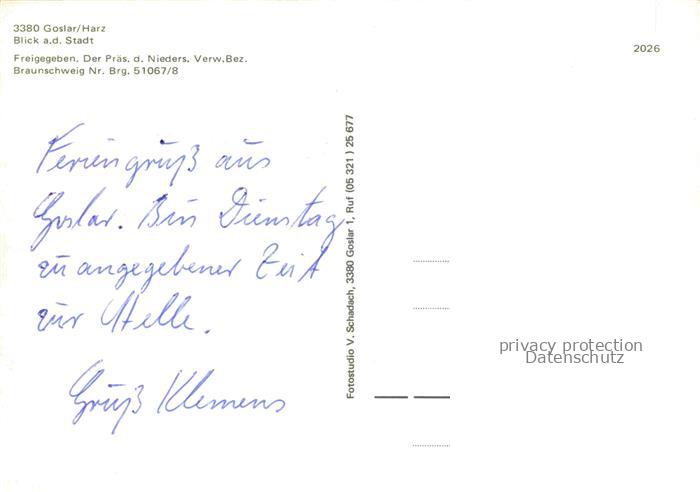 3380 Goslar/Harz
Blick a.d. Stadt
Freigegeben. Der Präs. d. Nieders. Verw.Bez.
Braunschweig Nr. Brg. 51067/8
2026
Feriengruß aus
Goslar. Bin Dienstag
zu angegebener Zeit
zur Stelle.
Gruß Klemens
Fotostudio V. Schadach, 3380 Goslar 1, Ruf (05 321) 25 677
privacy protection
Datenschutz